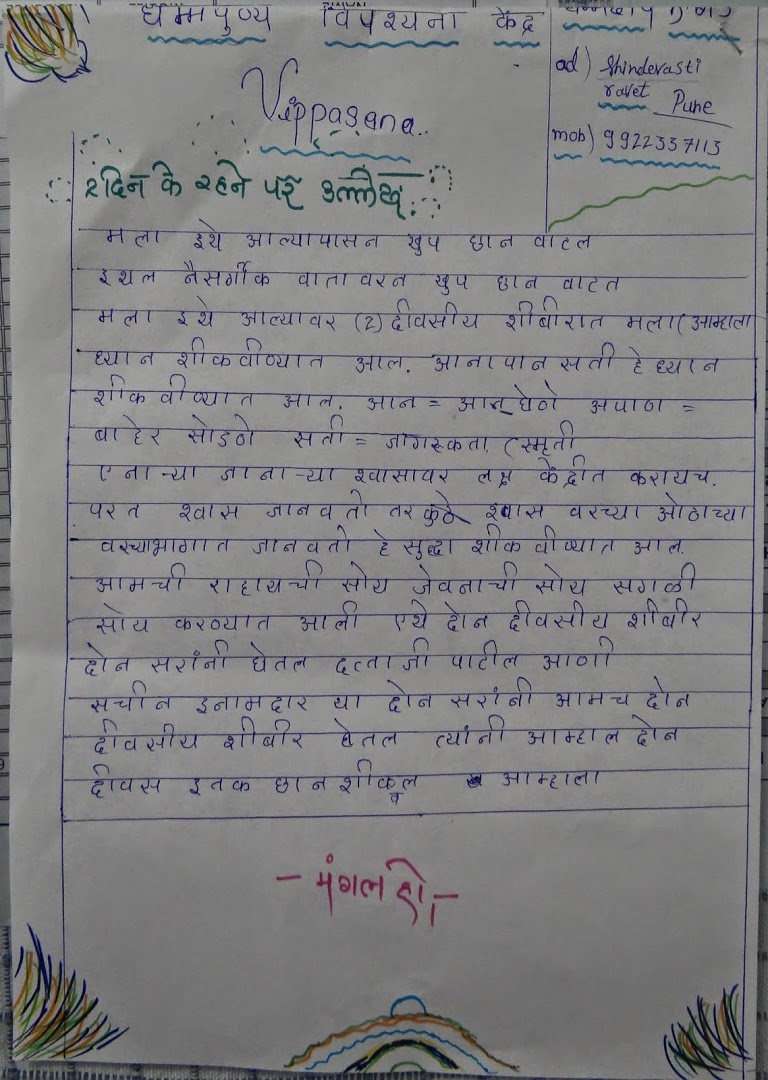 धम्मपुण्य विपश्यना केंद्र
ad) Shindevasti
ravet Pune
mob) 9922337113
Vippasana..
२दिन के रहने पर उल्लेख
मला इथे आल्यापासन खुप छान वाटल
इथल नैसर्गीक वातावरन खुप छान वाटत
मला इथे आल्यावर (2) दीवसीय शीबीरात मला (आम्हाला
ध्यान शीकवीण्यात आल. आनापान सती हे ध्यान
शीकवीण्यात आल. आन = आत घेणे अपाण =
बाहेर सोडणे सती = जागरुकता. (स्मृती
एनाऱ्या जानाऱ्या श्वासावर लक्ष केंद्रीत करायच.
परत श्वास जानवतो तर कुठे श्वास वरच्या ओठाच्या
वरच्याभागात जानवतो हे सुद्धा शीकवीण्यात आल.
आमची राहायची सोय जेवनाची सोय सगळी
सोय करण्यात आली एथे दोन दीवसीय शीबीर
दोन सरांनी घेतल दत्ताजी पाटील आणी
सचीन इनामदार या दोन सरांनी आमच दोन
दीवसीय शीबीर घेतल त्यांनी आम्हाल दोन
दीवस इतक छान शीकवल आम्हाला
- मंगल हो -